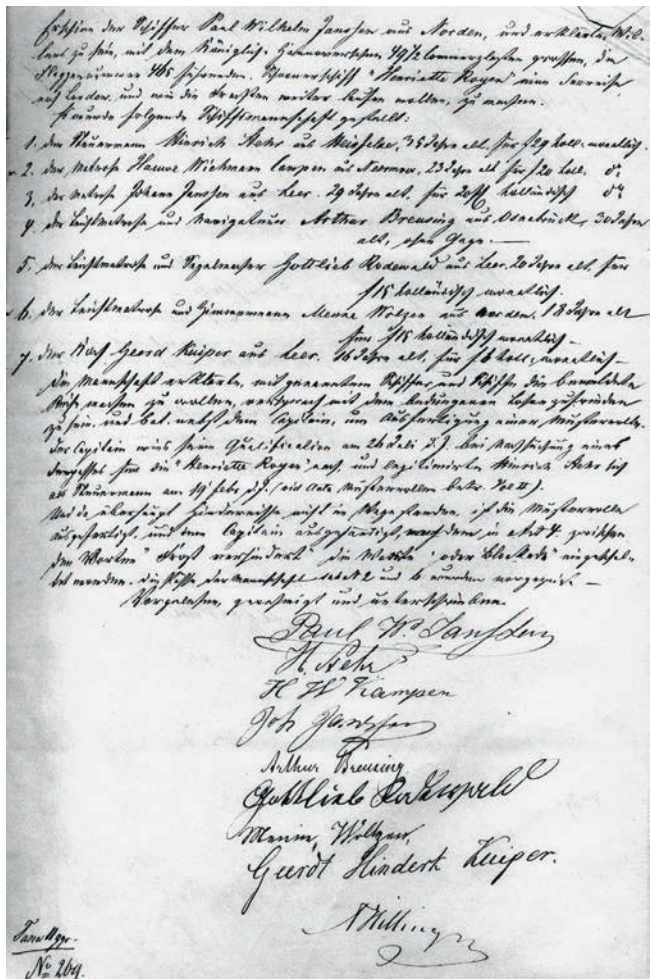 Erschien der Schiffer Paul Wilhelm Janssen aus Norden, und erklärte, Wil-
lens zu sein, mit dem Königlich Hannoverschen 49½ Commerzlasten grossen, die
Flaggennummer 465 führenden, Schoonerschiff "Henriette Rogen" eine Seereise
nach London, und wie die Frachten weiter fallen wollen, zu machen.
Es wurde folgende Schiffsmannschaft gestellt:
1. der Steuermann Hinrich Aehr aus, 35 Jahre alt, für f29 holl. monatlich.
2. der Matrose Harme Wichmann Campen aus Neermoor, 23 Jahre alt für f20 holl. do
3. der Matrose Johann Janssen aus Leer. 29 Jahre alt, für 20 holländisch do
4. der Leichtmatrose und Navigateur Arthur Breusing aus Osnabrück, 30 Jahre
alt, ohne Gage.—
5. der Leichtmatrose und Segelmacher Gottlieb Rodewald aus Leer. 20 Jahre alt, für
f15 holländisch monatlich.
6. der Leichtmatrose und Zimmermann Menne Wolzen aus Norden. 18 Jahre alt
für f15 holländisch monatlich—
7. der Koch Geerd Kuiper aus Leer. 16 Jahre alt, für f6 holl. monatlich—
Die Mannschaft erklärte, mit genanntem Schiffer und Schiffe die bemeldete
Reise machen zu wollen, versprach mit den bedungenen Löhnen zufrieden
zu sein, und bat nebst dem Capitain, um Ausfertigung einer Musterrolle.
Der Capitain wies seine Qualification am 26 Juli d. J. bei Nachsuchung eines
Seepasses für die "Henriette Rogen" nach, und legitimirte Hinrich Aehr sich
als Steuermann am 19 Febr d. J. (vid. Acta Musterrollen betr. Vol II).
Und da überhaupt Hindernisse nicht im Wege standen, ist die Musterrolle
ausgefertigt, und dem Capitain ausgehändigt, nachdem in Art 4. zwischen
den Worten "Frost verhindert" die Worte "oder Blockade" eingeschal-
tet worden. Die Pässe der Mannschaft sub No 2 und 6 wurden vorgezeigt—
Vorgelesen, genehmigt und unterschrieben.
Paul W. Janssen
H Aehr
H W Kampen
Joh Janssen
Arthur Breusing
Gottlieb Rodewald
Menne, Woltzen,
Geerdt Hindert Kuiper.
No 269.